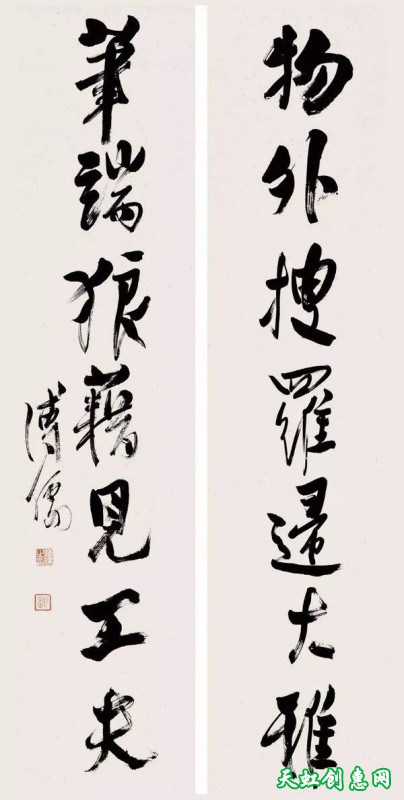 物外搜羅歸大雅
筆端狼藉見工夫
溥儒
天虹创惠网